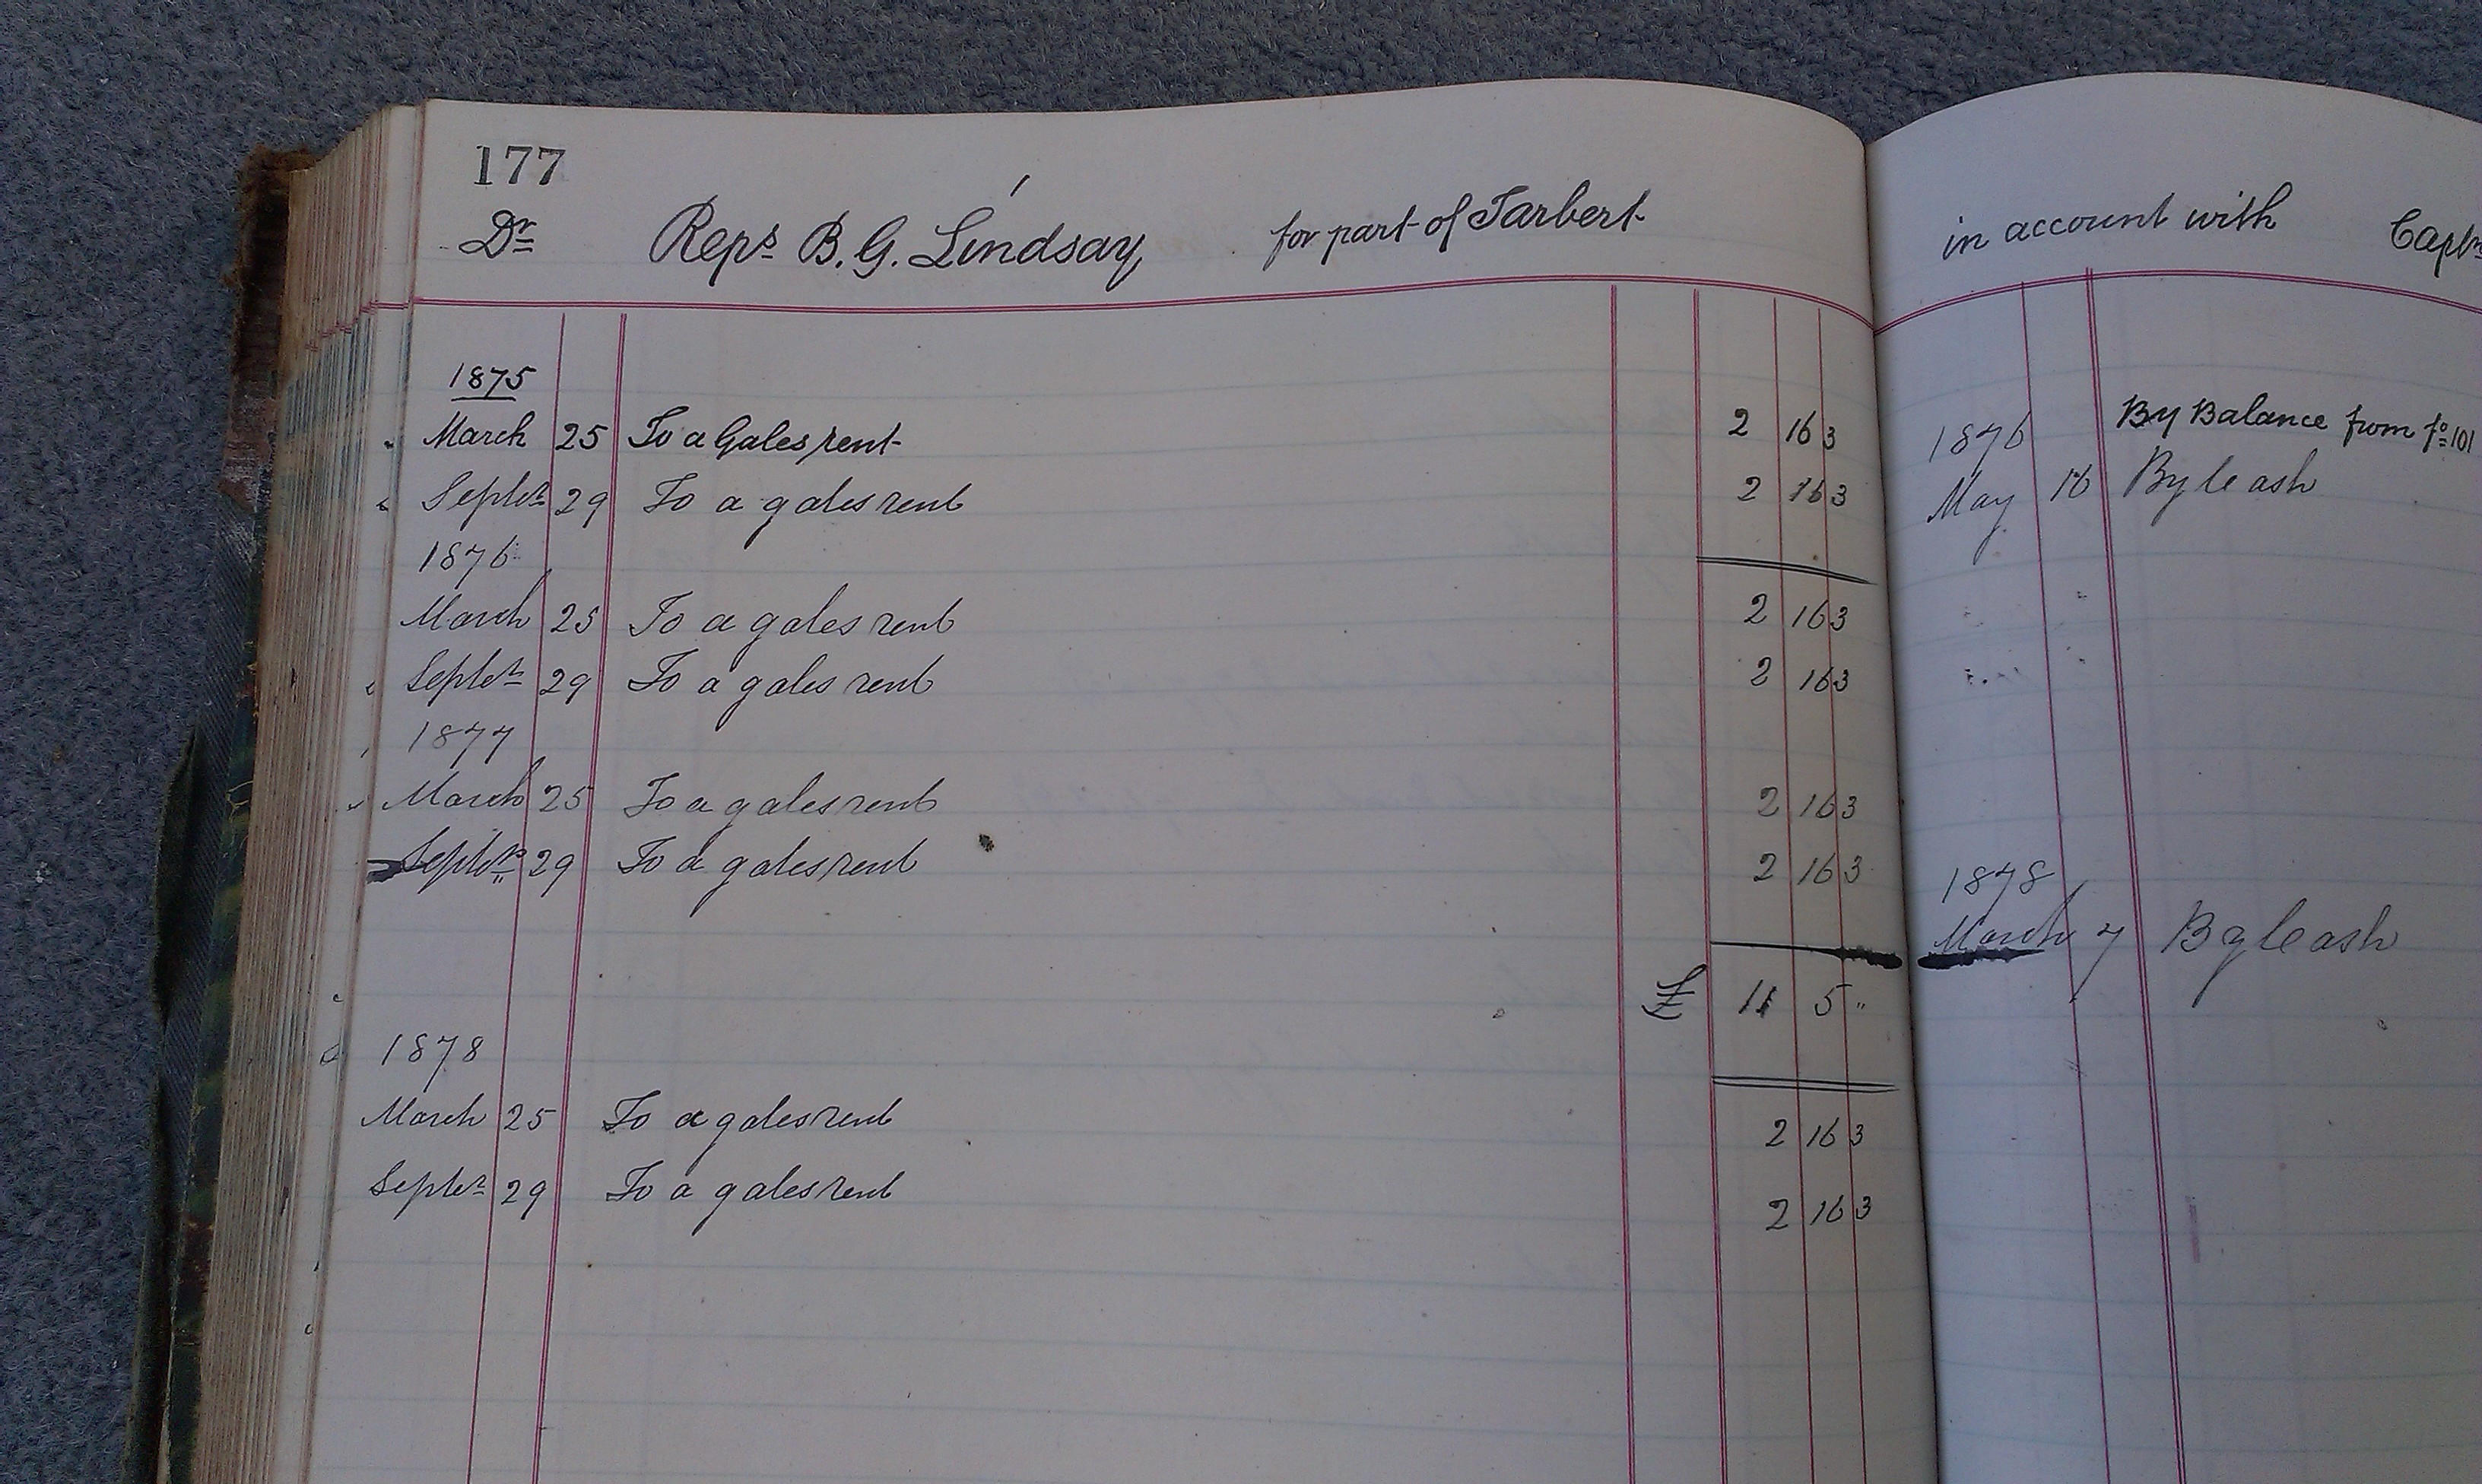 177
Dr Reps B. G. Lindsay for part of Tarbert
1875
March 25 To a Gales rent 2 16 3
Septr 29 To a gales rent 2 16 3
1876
March 25 To a gales rent 2 16 3
Septr 29 To a gales rent 2 16 3
1877
March 25 To a gales rent 2 16 3
Septr 29 To a gales rent 2 16 3
£ 11 5 "
1878
March 25 To a gales rent 2 16 3
Septr 29 To a gales rent 2 16 3
in account with Captn
By Balance from fo 101
1876
May 16 By Cash
1878
March 7 By Cash